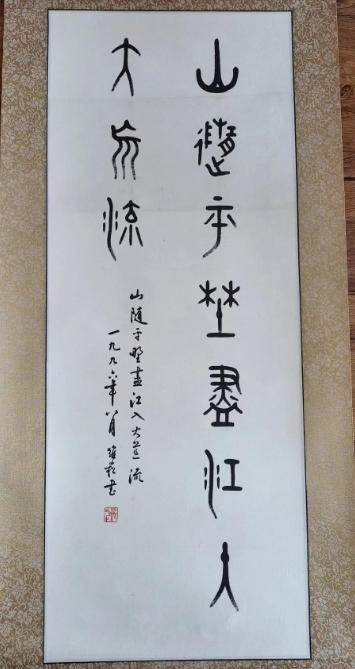 山隨平埜盡江入
大荒流
山随平野盡江入大荒流
一九九六年八月